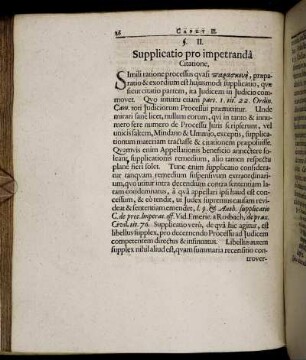 28 CAPUT II.
§. II.
Supplicatio pro impetrandâ
Citatione.
Simili ratione processus quasi παρασκευὴ, præpa-
ratio & exordium est hujusmodi supplicatio, quæ
sicut citatio partem, ita Judicem in Judicio com-
movet. Quo intuitu etiam part. 1. tit. 22. Ordin.
Cam. tori Judiciorum Processui præmittitur. Unde
mirari sanè licet, nullum eorum, qui in tanto & innu-
mero ferè numero de Processu Juris scripserunt, vel
unicis saltem, Mindano & Ummio, exceptis, supplica-
tionum materiam tractasse & citationem præposuisse.
Quamvis enim Appellationis beneficio annectere sole-
ant, supplicationis remedium, alio tamen respectu
planè fieri solet. Tunc enim supplicatio considera-
tur tanquam remedium suspensivum extraordinari-
um, quo utitur intra decendium contra sententiam la-
tam condemnatus, â quâ appellari ipsi haud est con-
cessum, & eò tendit, ut Judex causam suam revi-
deat & sententiam emendet,
C. de prec. Imperat. off. Vid. Emeric. à Rosbach, de prax.
Civil. tit. 70. Supplicatio verò, de quâ hic agitur, est
libellus supplex, pro decernendo Processu ad Judicem
competentem directus & insinuatus. Libellus autem
supplex nihil aliud est, quam summaria recensitio con-
trover-